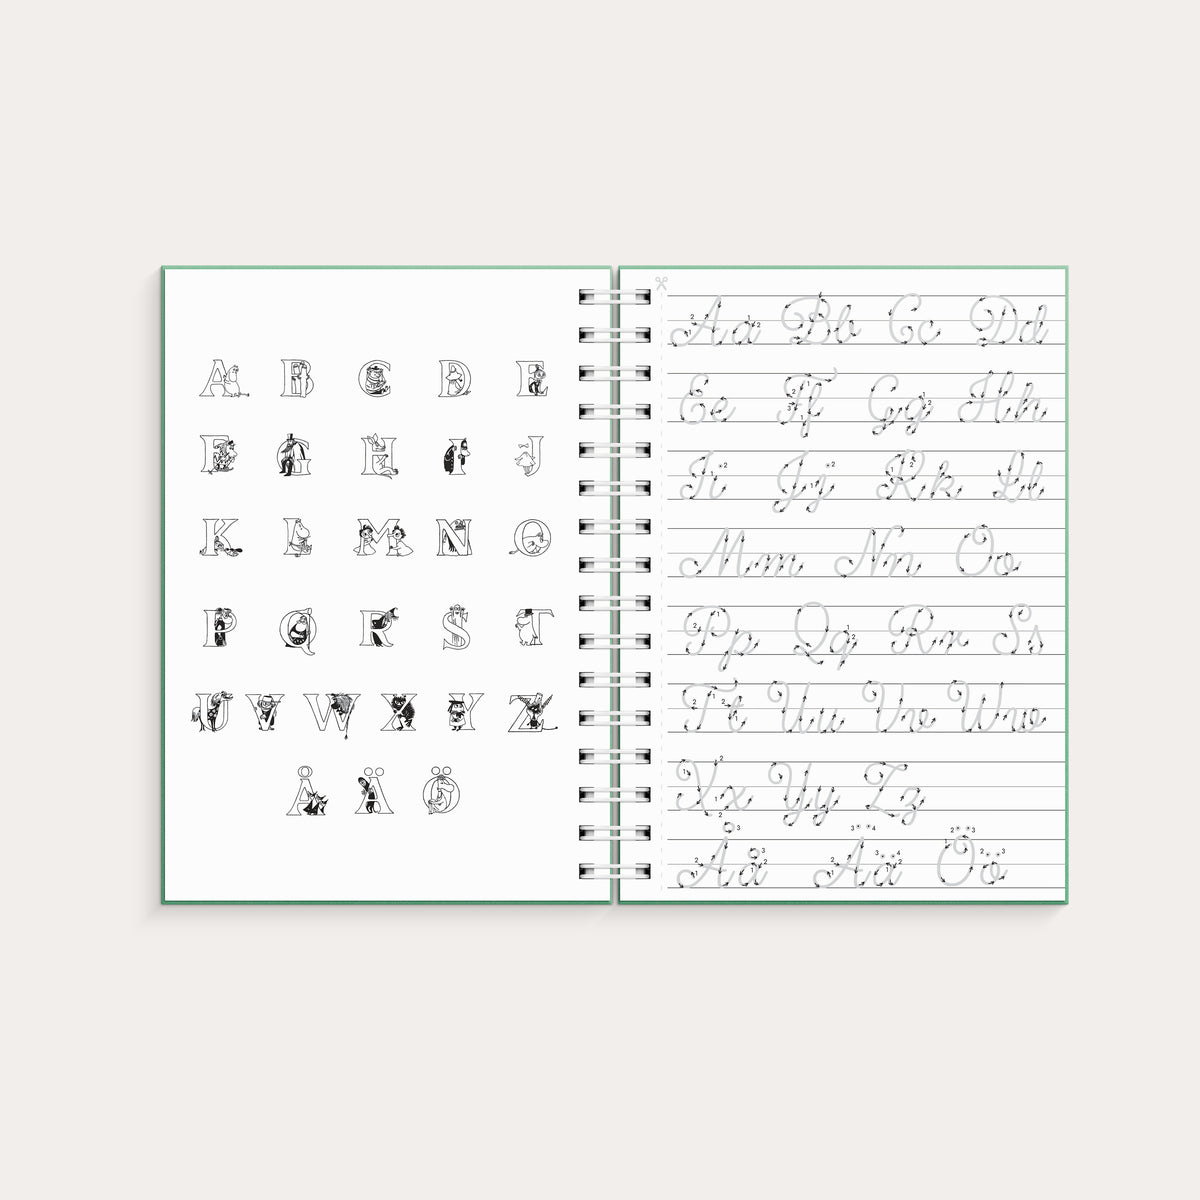 A B C D E
F G H I J
K L M N O
P Q R S T
U V W X Y Z
Å Ä Ö
Aa Bb Cc Dd
Ee Ff Gg Hh
Ii Jj Kk Ll
Mm Nn Oo
Pp Qq Rr Ss
Tt Uu Vv Ww
Xx Yy Zz
Åå Ää Öö